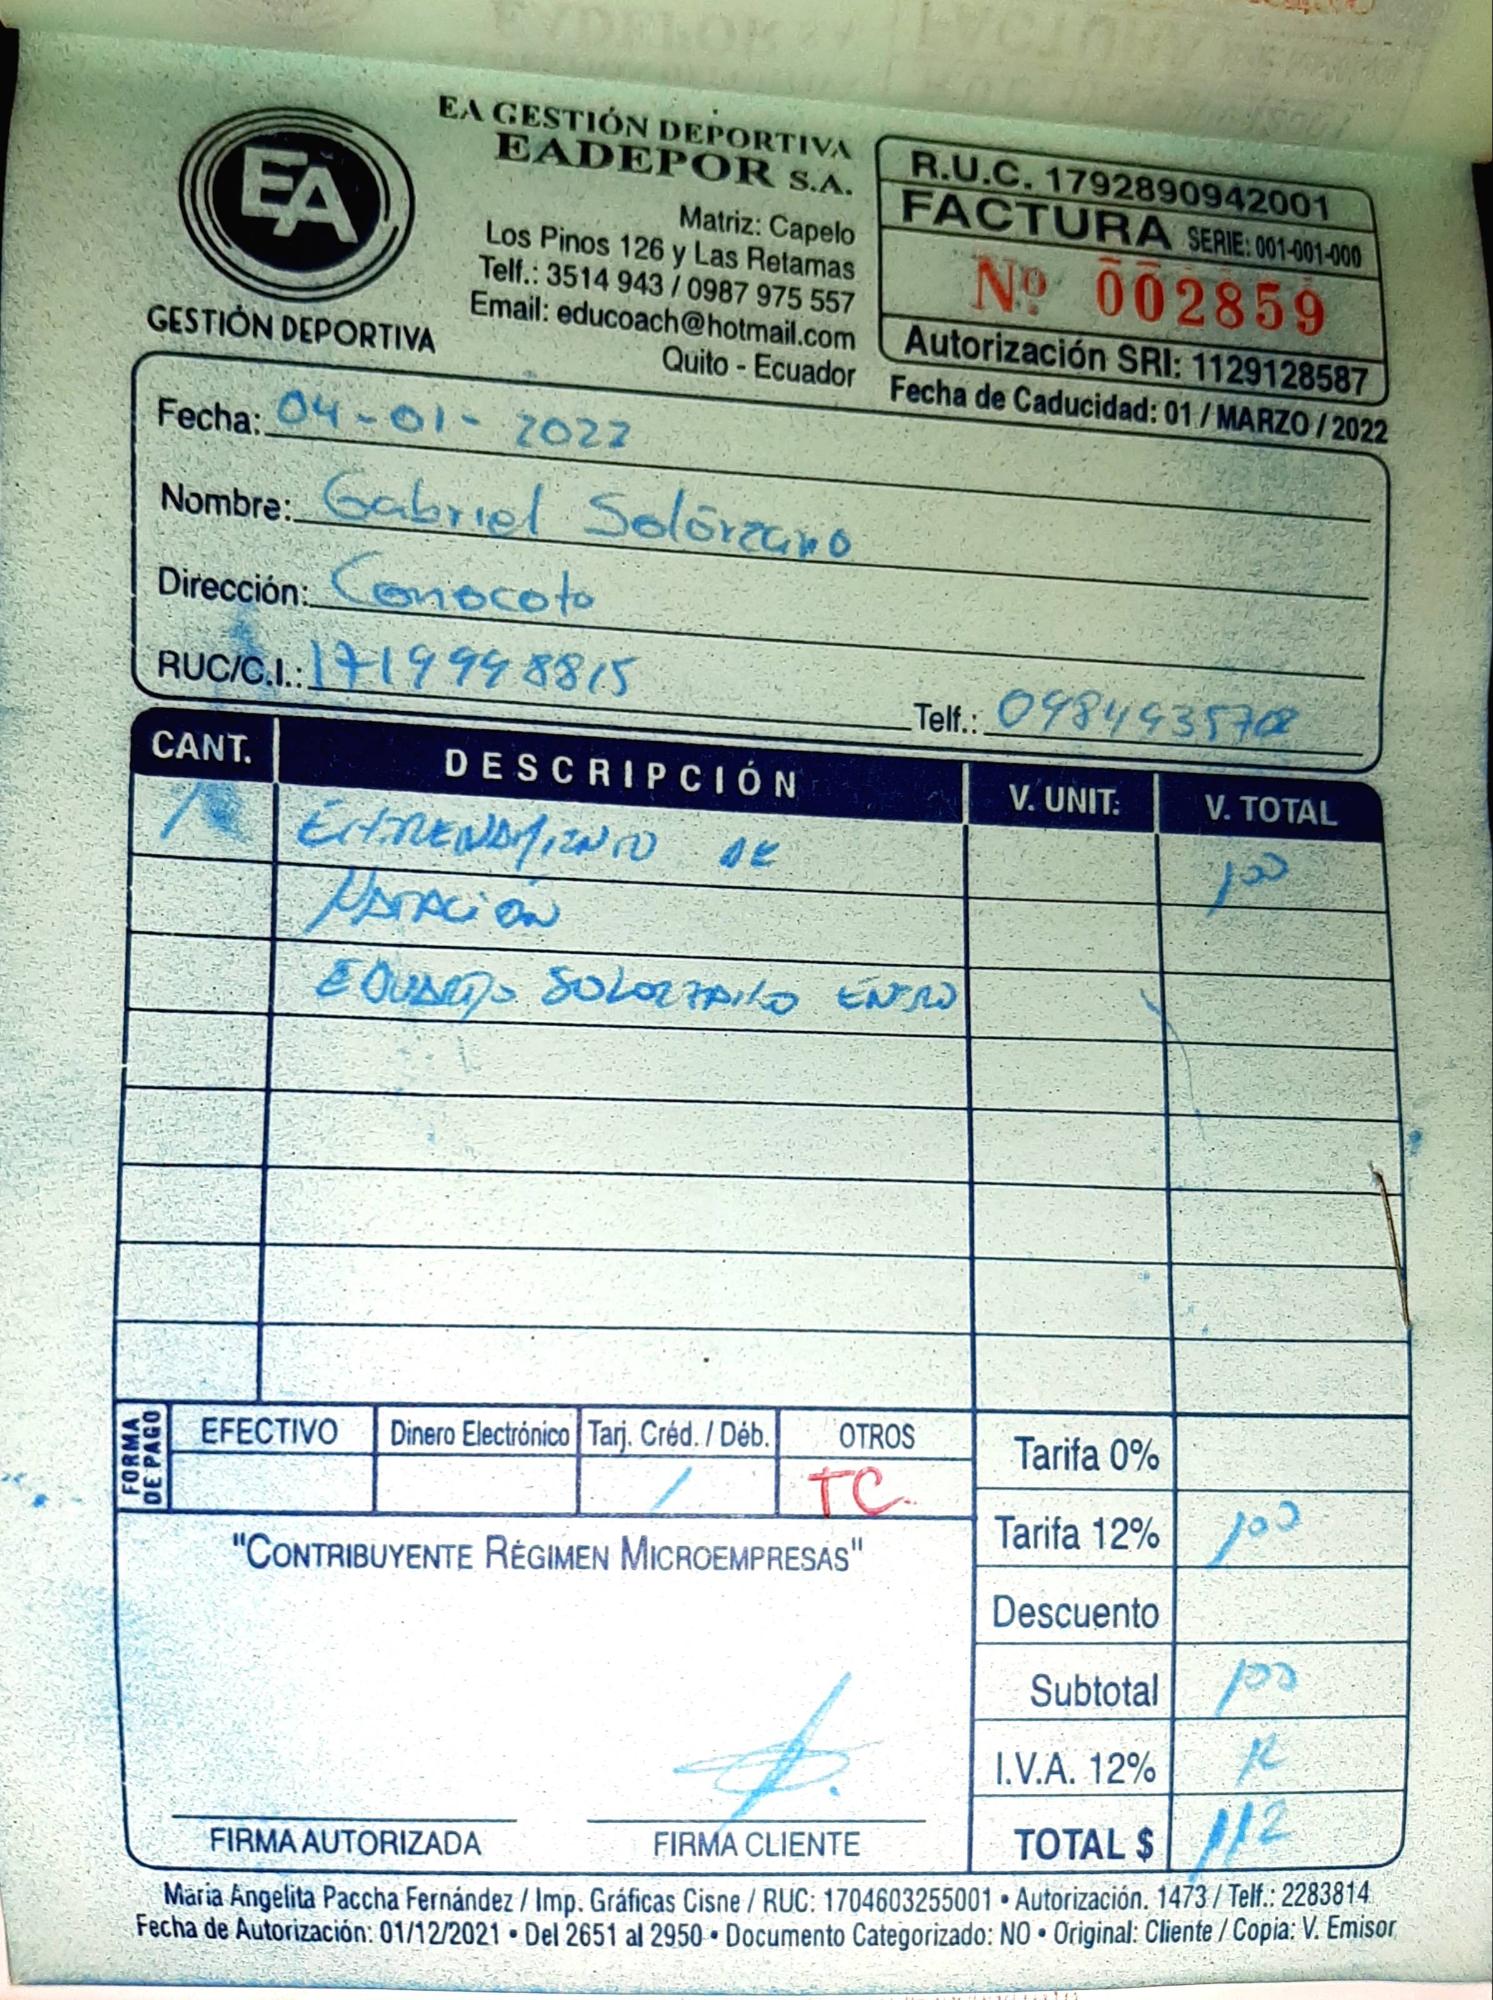 EA
GESTIÓN DEPORTIVA
EA GESTIÓN DEPORTIVA
EADEPOR S.A.
Matriz: Capelo
Los Pinos 126 y Las Retamas
Telf.: 3514 943 / 0987 975 557
Email: educoach@hotmail.com
Quito - Ecuador
R.U.C. 1792890942001
FACTURA SERIE: 001-001-000
Nº 002859
Autorización SRI: 1129128587
Fecha de Caducidad: 01 / MARZO / 2022
Fecha: 04-01-2022
Nombre: Gabriel Solórzano
Dirección: Conocoto
RUC/C.I.: 1719998815
Telf.:
CANT. DESCRIPCIÓN V. UNIT. V. TOTAL
1 ENTRENAMIENTO DE 100
NATACIÓN
EDUARDO SOLORZANO ENERO
FORMA DE PAGO
EFECTIVO Dinero Electrónico Tarj. Créd. / Déb. OTROS
/ TC.
Tarifa 0%
Tarifa 12% 100
Descuento
Subtotal 100
I.V.A. 12% 12
TOTAL $ 112
"CONTRIBUYENTE RÉGIMEN MICROEMPRESAS"
FIRMA AUTORIZADA FIRMA CLIENTE
Maria Angelita Paccha Fernández / Imp. Gráficas Cisne / RUC: 1704603255001 • Autorización. 1473 / Telf.: 2283814
Fecha de Autorización: 01/12/2021 • Del 2651 al 2950 • Documento Categorizado: NO • Original: Cliente / Copia: V. Emisor